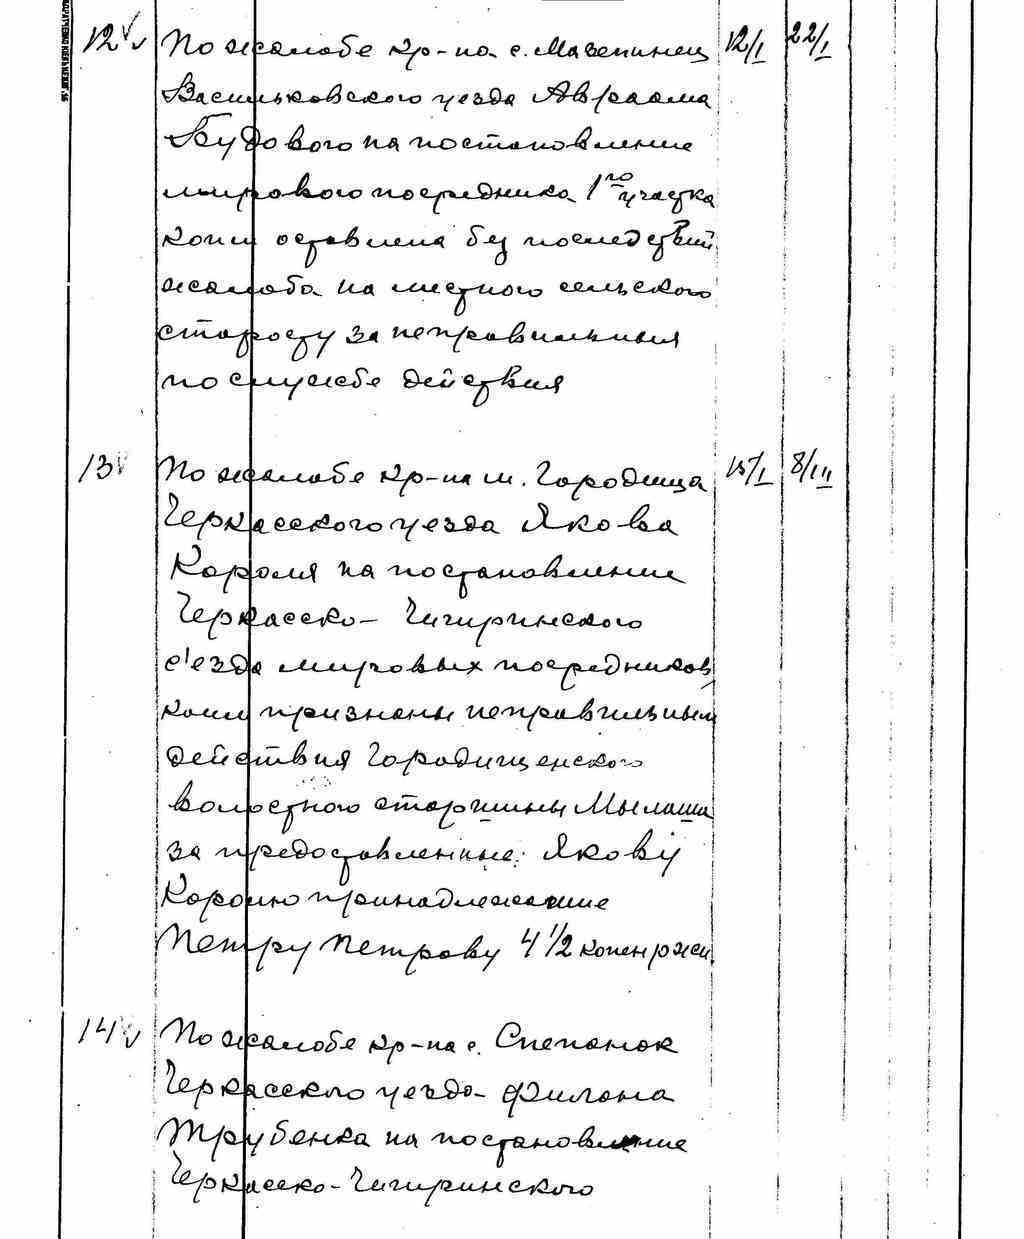 12 По жалобе кр-на с. Мазепинец 12/I 22/I
Васильковского уезда Авраама
Будового на постановление
мирового посредника 1го участка
коим оставлена без последствий
жалоба на местного сельского
старосту за неправильныя
по службе действия
13 По жалобе кр-на м. Городища 15/I 8/III
Черкасского уезда Якова
Короля на постановление
Черкасско-Чигиринского
с'езда мировых посредников,
коим признаны неправильным
действия Городищенского
волостного старшины Мылаша
за предоставление Якову
Королю принадлежащие
Петру Петрову 4 1/2 копен ржи.
14 По жалобе кр-на с.
Черкасского уезда Филона
Трубенка на постановление
Черкасско-Чигиринского